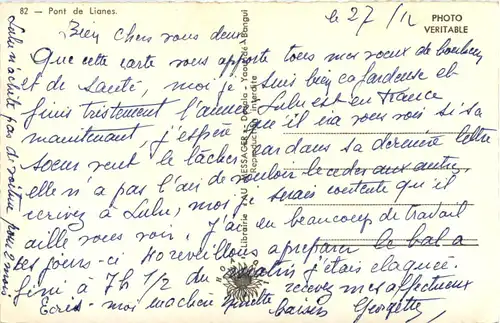 82 — Pont de Lianes.
le 27/12
PHOTO
VERITABLE
Bien chers vous deux
Que cette carte vous apporte tous mes voeux de bonheur
et de santé, moi je suis bien cafardeuse et
finis tristement l'année. Lulu est en France
maintenant, j'espère qu'il ira vous voir si sa
soeur veut le lâcher car dans sa dernière lettre
elle n'a pas l'air de vouloir le céder aux autres
écrivez à Lulu, moi je serais contente qu'il
aille vous voir, j'ai eu beaucoup de travail
ces jours-ci 40 réveillons a préparer le bal a
fini à 7h 1/2 du matin j'étais claquée.
Ecris-moi ma chère recevez mes affectueux
baisers Georgette
Lulu n'achète pas de voiture pour 2 mois
Librairie "AU MESSAGER" - Douala - Yaoundé - Bangui
Reproduction Interdite